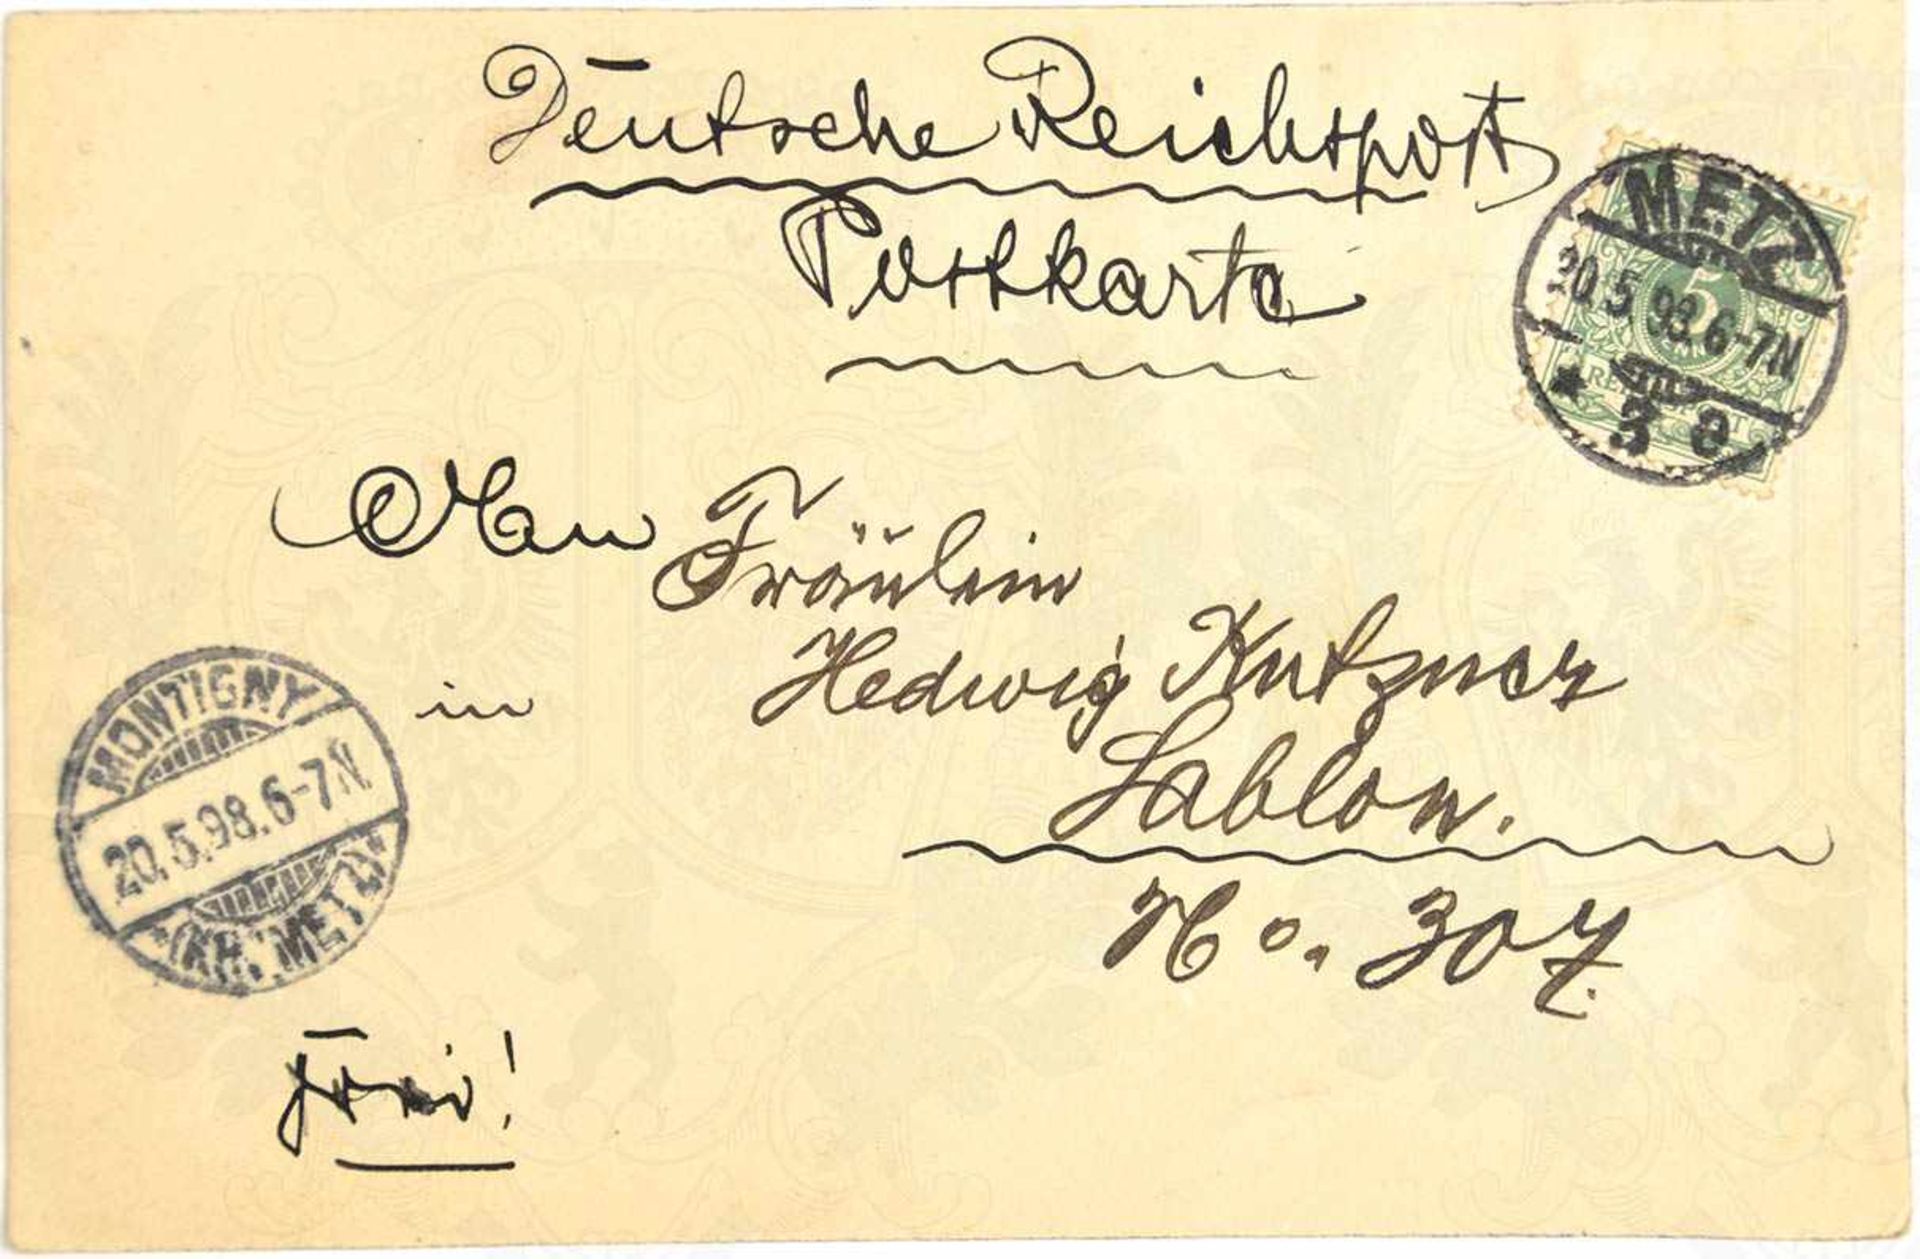 Deutsche Reichspost
Postkarte
METZ
20.5.98.6-7N
* 3 a
5
An Fräulein
Hedwig Kutzner
in
Sablon.
No. 307.
MONTIGNY
20.5.98.6-7N
*(KR. METZ)*
Frei!